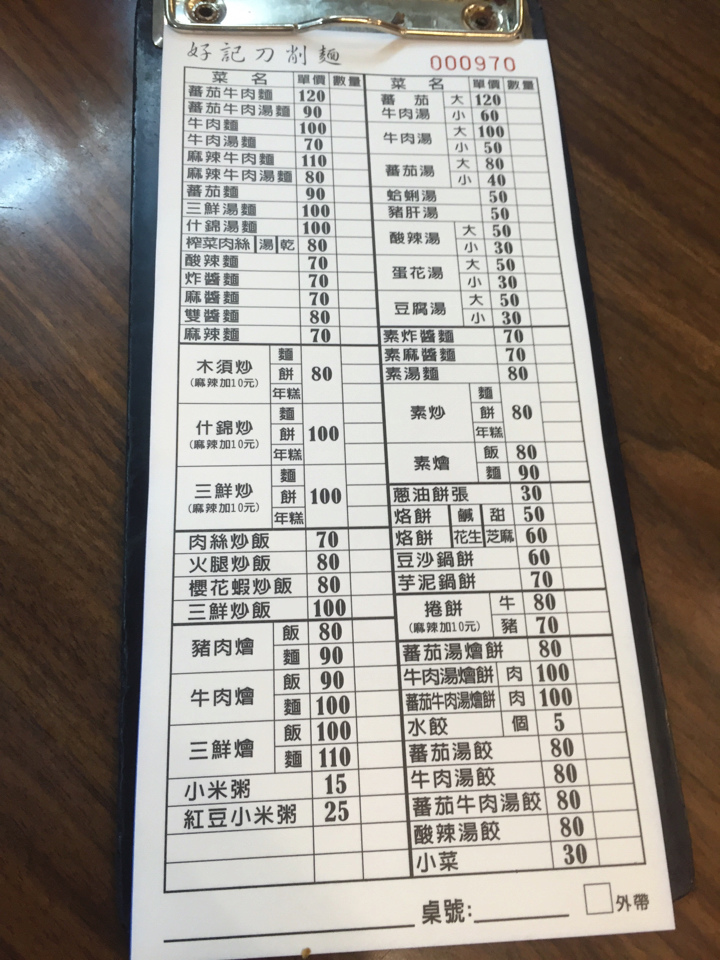 好記刀削麵
000970
菜 名 單價 數量
蕃茄牛肉麵 120
蕃茄牛肉湯麵 90
牛肉麵 100
牛肉湯麵 70
麻辣牛肉麵 110
麻辣牛肉湯麵 80
蕃茄麵 90
三鮮湯麵 100
什錦湯麵 100
榨菜肉絲 湯 乾 80
酸辣麵 70
炸醬麵 70
麻醬麵 70
雙醬麵 80
麻辣麵 70
木須炒 麵 餅 年糕 80
(麻辣加10元)
什錦炒 麵 餅 年糕 100
(麻辣加10元)
三鮮炒 麵 餅 年糕 100
(麻辣加10元)
肉絲炒飯 70
火腿炒飯 80
櫻花蝦炒飯 80
三鮮炒飯 100
豬肉燴 飯 80
麵 90
牛肉燴 飯 90
麵 100
三鮮燴 飯 100
麵 110
小米粥 15
紅豆小米粥 25
菜 名 單價 數量
蕃茄 大 120
牛肉湯 小 60
牛肉湯 大 100
小 50
蕃茄湯 大 80
小 40
蛤蜊湯 50
豬肝湯 50
酸辣湯 大 50
小 30
蛋花湯 大 50
小 30
豆腐湯 大 50
小 30
素炸醬麵 70
素麻醬麵 70
素湯麵 80
素炒 麵 餅 年糕 80
素燴 飯 80
麵 90
蔥油餅張 30
烙餅 鹹 甜 50
烙餅 花生 芝麻 60
豆沙鍋餅 60
芋泥鍋餅 70
捲餅 牛 80
(麻辣加10元) 豬 70
蕃茄湯燴餅 80
牛肉湯燴餅 肉 100
蕃茄牛肉湯燴餅 肉 100
水餃 個 5
蕃茄湯餃 80
牛肉湯餃 80
蕃茄牛肉湯餃 80
酸辣湯餃 80
小菜 30
桌號: 外帶